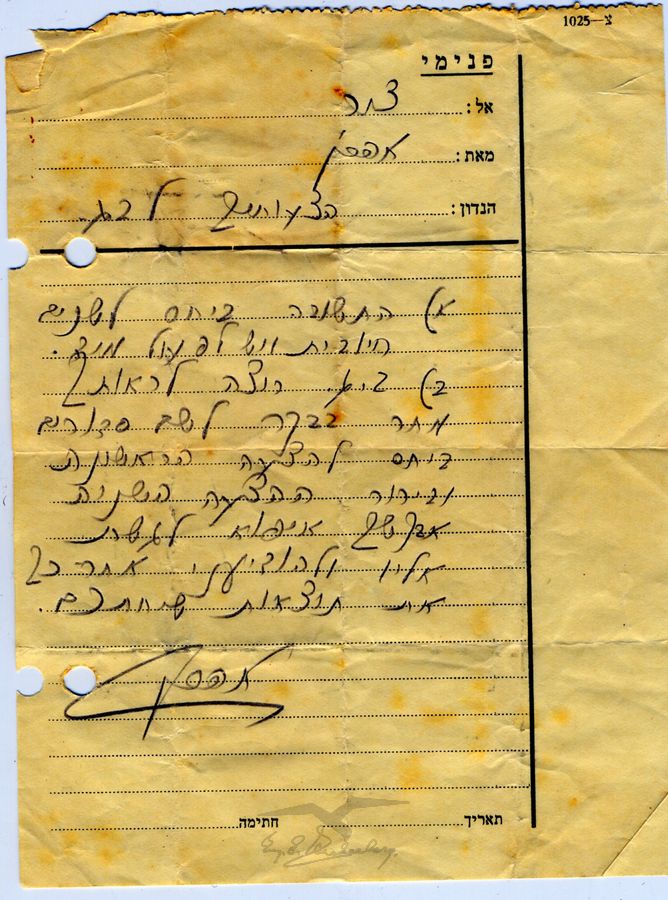 צ—1025
פנימי
אל: צור
מאת:
הנדון: הצעותיך ל
א) התשובה ביחס לשנים
חיובית ויש לפעול מיד.
ב) רוצה לראותך
מחר בבקר לשם סדורים
ביחס להצעה הראשונה
ובירור ההצעה השניה
אבקשך איפוא לגשת
אליו ולהודיעני אחר כך
את תוצאות שיחתכם.
תאריך חתימה